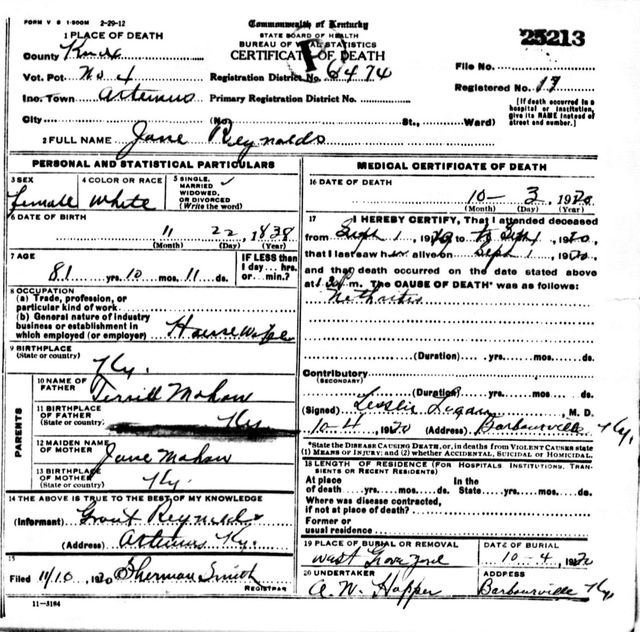 FORM V S 1-500M 2-29-12
Commonwealth of Kentucky
STATE BOARD OF HEALTH
BUREAU OF VITAL STATISTICS
CERTIFICATE OF DEATH
25213
1 PLACE OF DEATH
County Knox
Vot. Pct. No 4
Inc. Town Artemus
City
Registration District No. 6474
Primary Registration District No.
(No. St., Ward)
File No.
Registered No. 17
[If death occurred in a hospital or institution, give its NAME instead of street and number.]
2 FULL NAME Jane Reynolds
PERSONAL AND STATISTICAL PARTICULARS
3 SEX Female
4 COLOR OR RACE White
5 SINGLE, MARRIED WIDOWED, OR DIVORCED (Write the word)
6 DATE OF BIRTH
11 22, 1838
(Month) (Day) (Year)
7 AGE
81 yrs. 10 mos. 11 ds.
IF LESS than 1 day... hrs. or... min.?
8 OCCUPATION
(a) Trade, profession, or particular kind of work
(b) General nature of industry business or establishment in which employed (or employer) House
9 BIRTHPLACE (State or country) Ky.
PARENTS
10 NAME OF FATHER Terrill Mahan
11 BIRTHPLACE OF FATHER (State or country) Ky
12 MAIDEN NAME OF MOTHER Jane Mahan
13 BIRTHPLACE OF MOTHER (State or country) Ky.
14 THE ABOVE IS TRUE TO THE BEST OF MY KNOWLEDGE
(Informant) Grant Reynolds
(Address) Artemus Ky.
15
Filed 11/10, 1920 Sherman Smith
REGISTRAR
11-3184
MEDICAL CERTIFICATE OF DEATH
16 DATE OF DEATH
10- 3, 1920
(Month) (Day) (Year)
17 I HEREBY CERTIFY, That I attended deceased
from Sept 1, to Sept 1, 1920,
that I last saw her alive on Sept 1, 1920,
and that death occurred on the date stated above
at m. The CAUSE OF DEATH* was as follows:
(Duration) yrs. mos. ds.
Contributory
(SECONDARY)
(Duration) yrs. mos. ds.
(Signed) Leslie Logan, M. D.
10-4, 1920 (Address) Barbourville Ky.
*State the DISEASE CAUSING DEATH, or, in deaths from VIOLENT CAUSES state (1) MEANS OF INJURY; and (2) whether ACCIDENTAL, SUICIDAL or HOMICIDAL.
18 LENGTH OF RESIDENCE (FOR HOSPITALS INSTITUTIONS, TRANSIENTS OR RECENT RESIDENTS)
At place of death yrs. mos. ds. In the State yrs. mos. ds.
Where was disease contracted, if not at place of death?
Former or usual residence
19 PLACE OF BURIAL OR REMOVAL
West Grove Yard
DATE OF BURIAL
10-4, 1920
20 UNDERTAKER
A. W. Hopper
ADDRESS
Barbourville Ky.